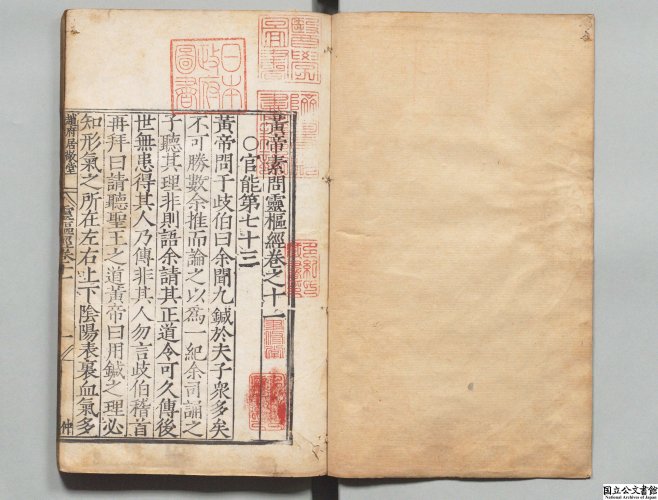 黃帝素問靈樞經卷之十一
○官能第七十三
黃帝問于歧伯曰余聞九鍼於夫子衆多矣
不可勝數余推而論之以爲一紀余司誦之
子聽其理非則語余請其正道令可久傳後
世無患得其人乃傳非其人勿言歧伯稽首
再拜曰請聽聖王之道黃帝曰用鍼之理必
知形氣之所在左右上下陰陽表裏血氣多
趙府居敬堂
日本
政府
圖書
国立公文書館
National Archives of Japan